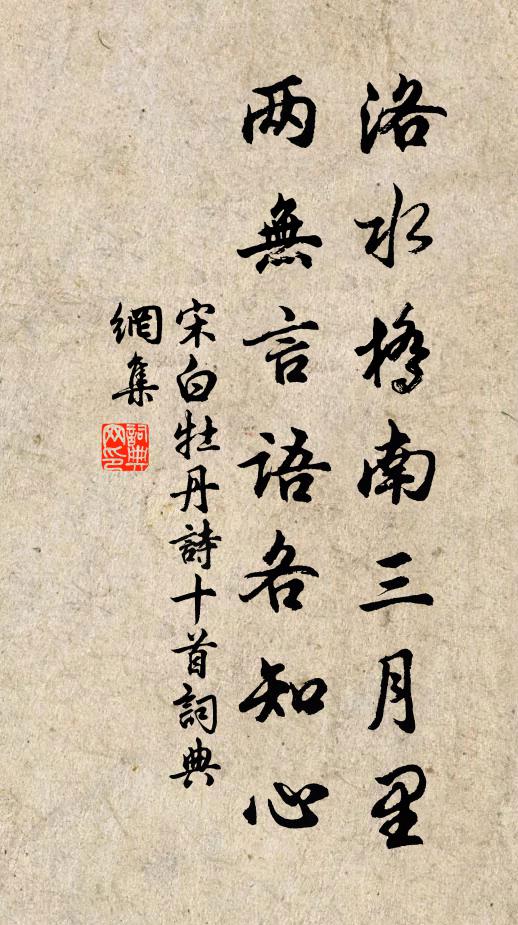 洛水橋南三月里
两無言語各知心
宋白牡丹詩十首詞典
網集
詞典
网印